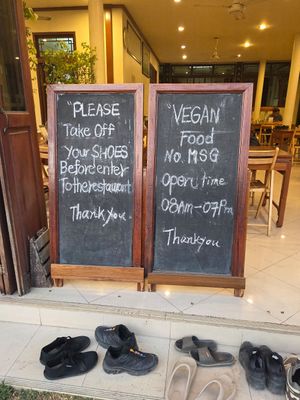 "PLEASE
Take Off
Your SHOES
Before enter
To the restaurant
Thank you
"VEGAN"
Food
No. MSG
Open time
08Am-07Pm
Thank you